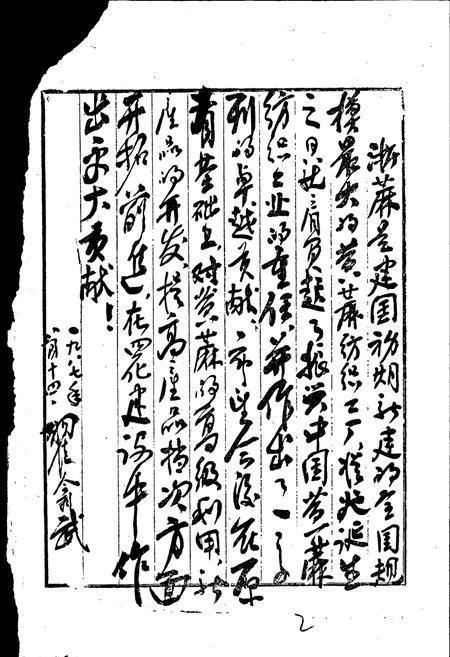 浙麻是建国初期新建的全国规
模最大的黄麻纺织工厂，从诞生
之日就肩负起了振兴中国黄麻
纺织工业的重任，并作出了一系
列的卓越贡献，希望今后在原
有基础上对黄麻的高级利用、新
产品的开发、提高产品档次方面
开拓前进，在四化建设中作
出更大贡献！
一九八七年
八月十四日
2